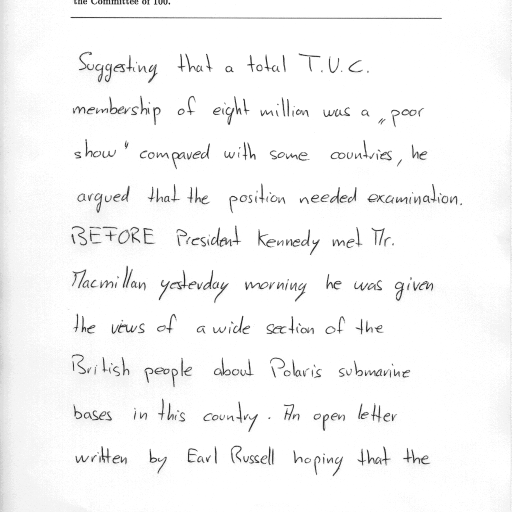 the Committee of 100.
Suggesting that a total T.U.C.
membership of eight million was a „poor
show" compared with some countries, he
argued that the position needed examination.
BEFORE President Kennedy met Mr.
Macmillan yesterday morning he was given
the views of a wide section of the
British people about Polaris submarine
bases in this country. An open letter
written by Earl Russell hoping that the